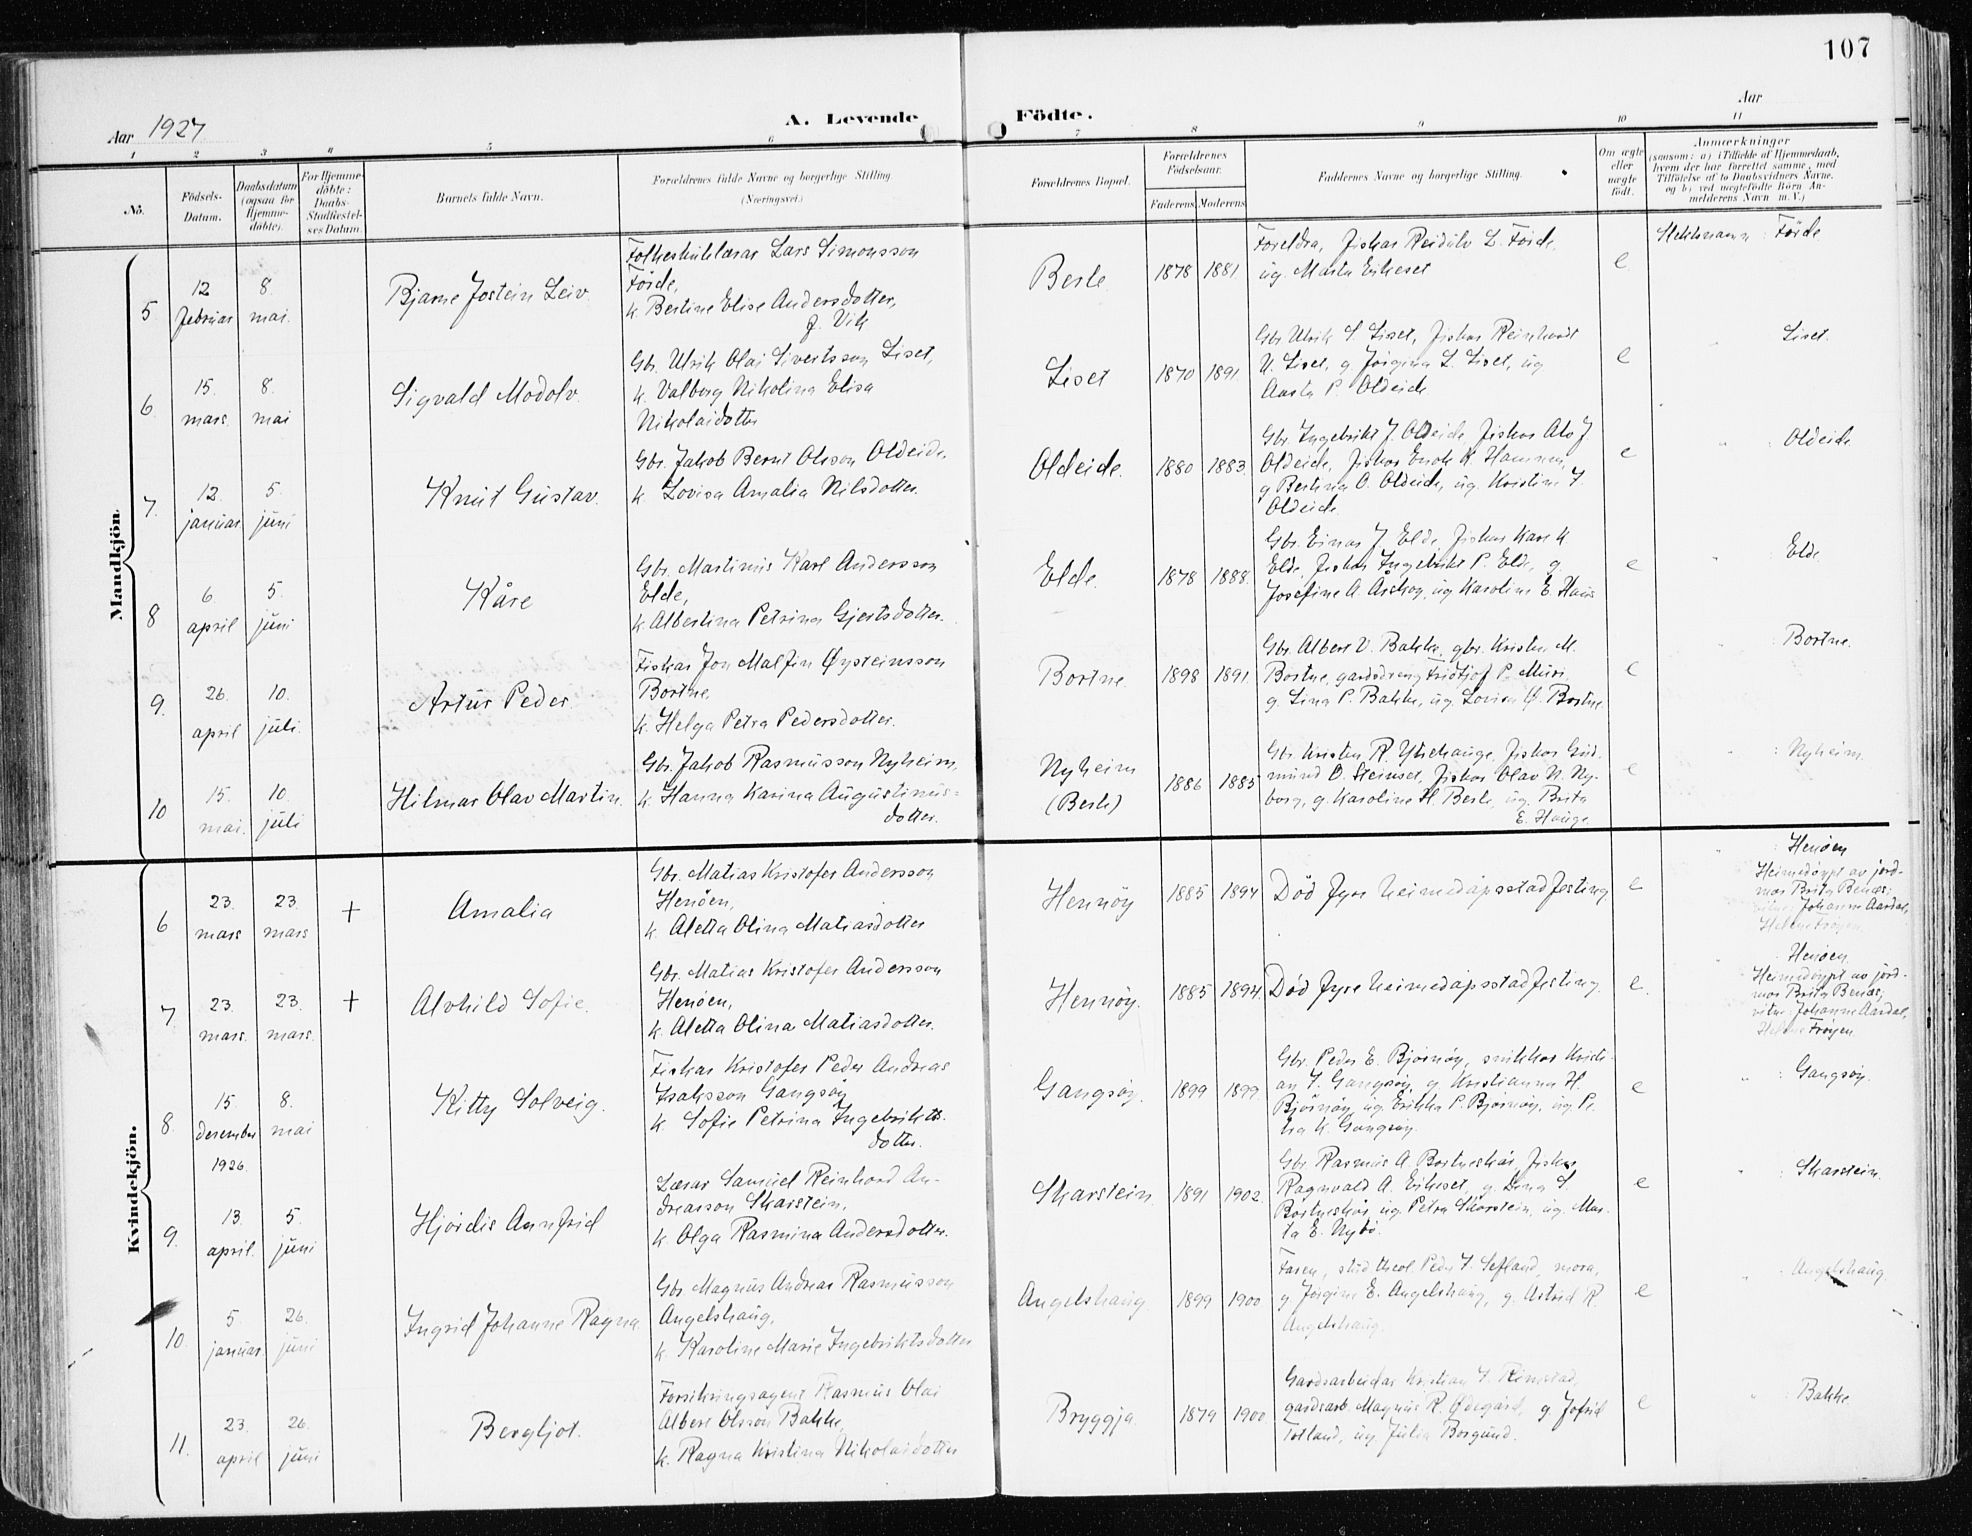 107
Aar 1927
A. Levende Födte.
Aar
1 2 3 4 5 6 7 8 9 10 11
No.
Födsels-Datum.
Daabsdatum (ogsaa for Hjemme-döbte).
For Hjemme-döbte: Daabs-Stadfæstel-ses Datum.
Barnets fulde Navn.
Forældrenes fulde Navne og borgerlige Stilling. (Næringsvei.)
Forældrenes Bopæl.
Forældrenes Födselsaar.
Faderens Moderens
Faddernes Navne og borgerlige Stilling.
Om ægte eller uægte födt.
Anmærkninger
(saasom: a) i Tilfælde af Hjemmedaab, hvem der har forrettet samme, med Tilföielse af to Daabsvidners Navne. og b) ved uægtefödte Börn An-melderens Navn m. V.)
Mandkjön.
5
12 februar
8. mai.
Bjarne Jostein Leiv.
Folkeskulelærar Lars Simonsson
Førde,
k. Bertine Elise Andersdotter,
f. Vik
Berle.
1878 1881
Foreldra, fiskar Reidulv L. Førde,
ug. Marta Eikeset
e
Slektsnamn: Førde
6.
15. mars.
8. mai
Sigvald Modolv.
Gbr. Ulrik Olai Sivertsson Liset,
k. Valborg Nikolina Elisa
Nikolaidotter
Liset
1870 1891.
Gbr Ulrik S. Liset, fiskar Reinhardt
U. Liset, g. Jørgina L. Liset, ug
Aasta P. Oldeide.
e
" Liset.
7.
12. januar.
5. juni
Knut Gustav.
Gbr. Jakob Bernt Olsson Oldeide.
k. Lovisa Amalia Nilsdotter.
Oldeide.
1880 1883.
Gbr. Ingebrikt J. Oldeide, fiskar Alv J
Oldeide, fiskar Enok K. Hammen,
g Bertina O. Oldeide, ug. Kristine J.
Oldeide.
e
" : Oldeide
8
6. april
5. juni
Kåre
Gbr. Martinus Karl Andersson
Elde,
k. Albertina Petrina Gjertsdotter.
Elde.
1878 1888.
Gbr. Einar J. Elde, fiskar Kare K
Elde, fiskar Ingebrikt P. Elde, g.
Josefine A. Årskog, ug Karoline E. Haus
e
" : Elde
9.
26. april
10. juli.
Artur Peder
Fiskar Jon Malfin Øysteinsson
Bortne
k. Helga Petra Pedersdotter.
Bortne.
1898 1891.
Gbr. Albert V. Bakke, gbr. Kristen M.
Bortne, gardsdreng Fridtjof P. Muri,
g. Lina P. Bakke, ug. Lovisa Ø. Bortne.
e
" : Bortne.
10
15. mai.
10. juli
Hilmar Olav Martin.
Gbr. Jakob Rasmusson Nyheim,
k. Hanna Karina Augustinus-
dotter.
Nyheim
(Berle)
1886 1885
Gbr. Kristen R. Ytrehauge, fiskar Gud-
mund O. Steinset, fiskar Olav N. Ny-
borg, g. Karoline H. Berle, ug. Brita
E. Hauge.
e
" : Nyheim.
Kvindekjön.
6
23. mars
23. mars
+
Amalia
Gbr. Matias Kristofer Andersson
Henøen,
k. Aletta Olina Matiasdotter
Hennøy
1885 1894
Død fyre heimedåpsstadfesting
e
" : Henøen
Heimedøypt av jord-
mor Brita Benæs;
vitne: Johanne Aardal,
Helene Frøyen.
7.
23. mars.
23. mars.
+
Alvhild Sofie.
Gbr. Matias Kristofer Andersson
Henøen,
k. Aletta Olina Matiasdotter.
Hennøy.
1885 1894.
Død fyre heimedåpsstadfesting.
e.
: Henøen.
Heimedøypt av jord-
mor Brita Benæs;
vitne: Johanne Aardal,
Helene Frøyen.
8.
15 desember 1926.
8. mai
Kitty Solveig.
Fiskar Kristofer Peder Andreas
Isaksson Gangsøy
k. Sofie Petrina Ingebrikts-
dotter.
Gangsøy.
1899 1899.
Gbr. Peder E. Bjørnøy, snikkar Kristi-
an I. Gangsøy, g. Kristianna H.
Bjørnøy, ug. Erikka P. Bjørnøy, ug Pe-
tra K. Gangsøy.
e
" : Gangsøy.
9.
13. april.
5. juni
Hjørdis Annfrid
Lærar Samuel Reinhard An-
dreasson Skarstein,
k. Olga Rasmina Andersdotter.
Skarstein.
1891 1902.
Gbr. Rasmus A. Bortneskår, fiskar
Ragnvald A. Eikeset, g. Dina S.
Bortneskår, ug. Petra Skarstein, ug. Mar-
ta E. Nybø.
e
" : Skarstein.
10.
5. januar.
26. juni
Ingrid Johanne Ragna.
Gbr Magnus Andreas Rasmusson
Angelshaug,
k. Karoline Marie Ingebriktsdotter
Angelshaug.
1899 1900
Faren, stud theol Peder I. Sefland, mora,
g Jørgine E. Angelshaug, g. Astrid R.
Angelshaug.
e
" : Angelshaug.
11.
23. april
26. juni
Bergljot.
Forsikringsagent Rasmus Olai
Albert Olsson Bakke,
k. Ragna Kristina Nikolaidotter
Bryggja.
1879 1900.
Gardsarbeidar Kristian I. Rimstad,
gardsarb. Magnus R. Ødegård, g. Jofrid
Totland, ug. Julia Borgund.
e
" : Bakke